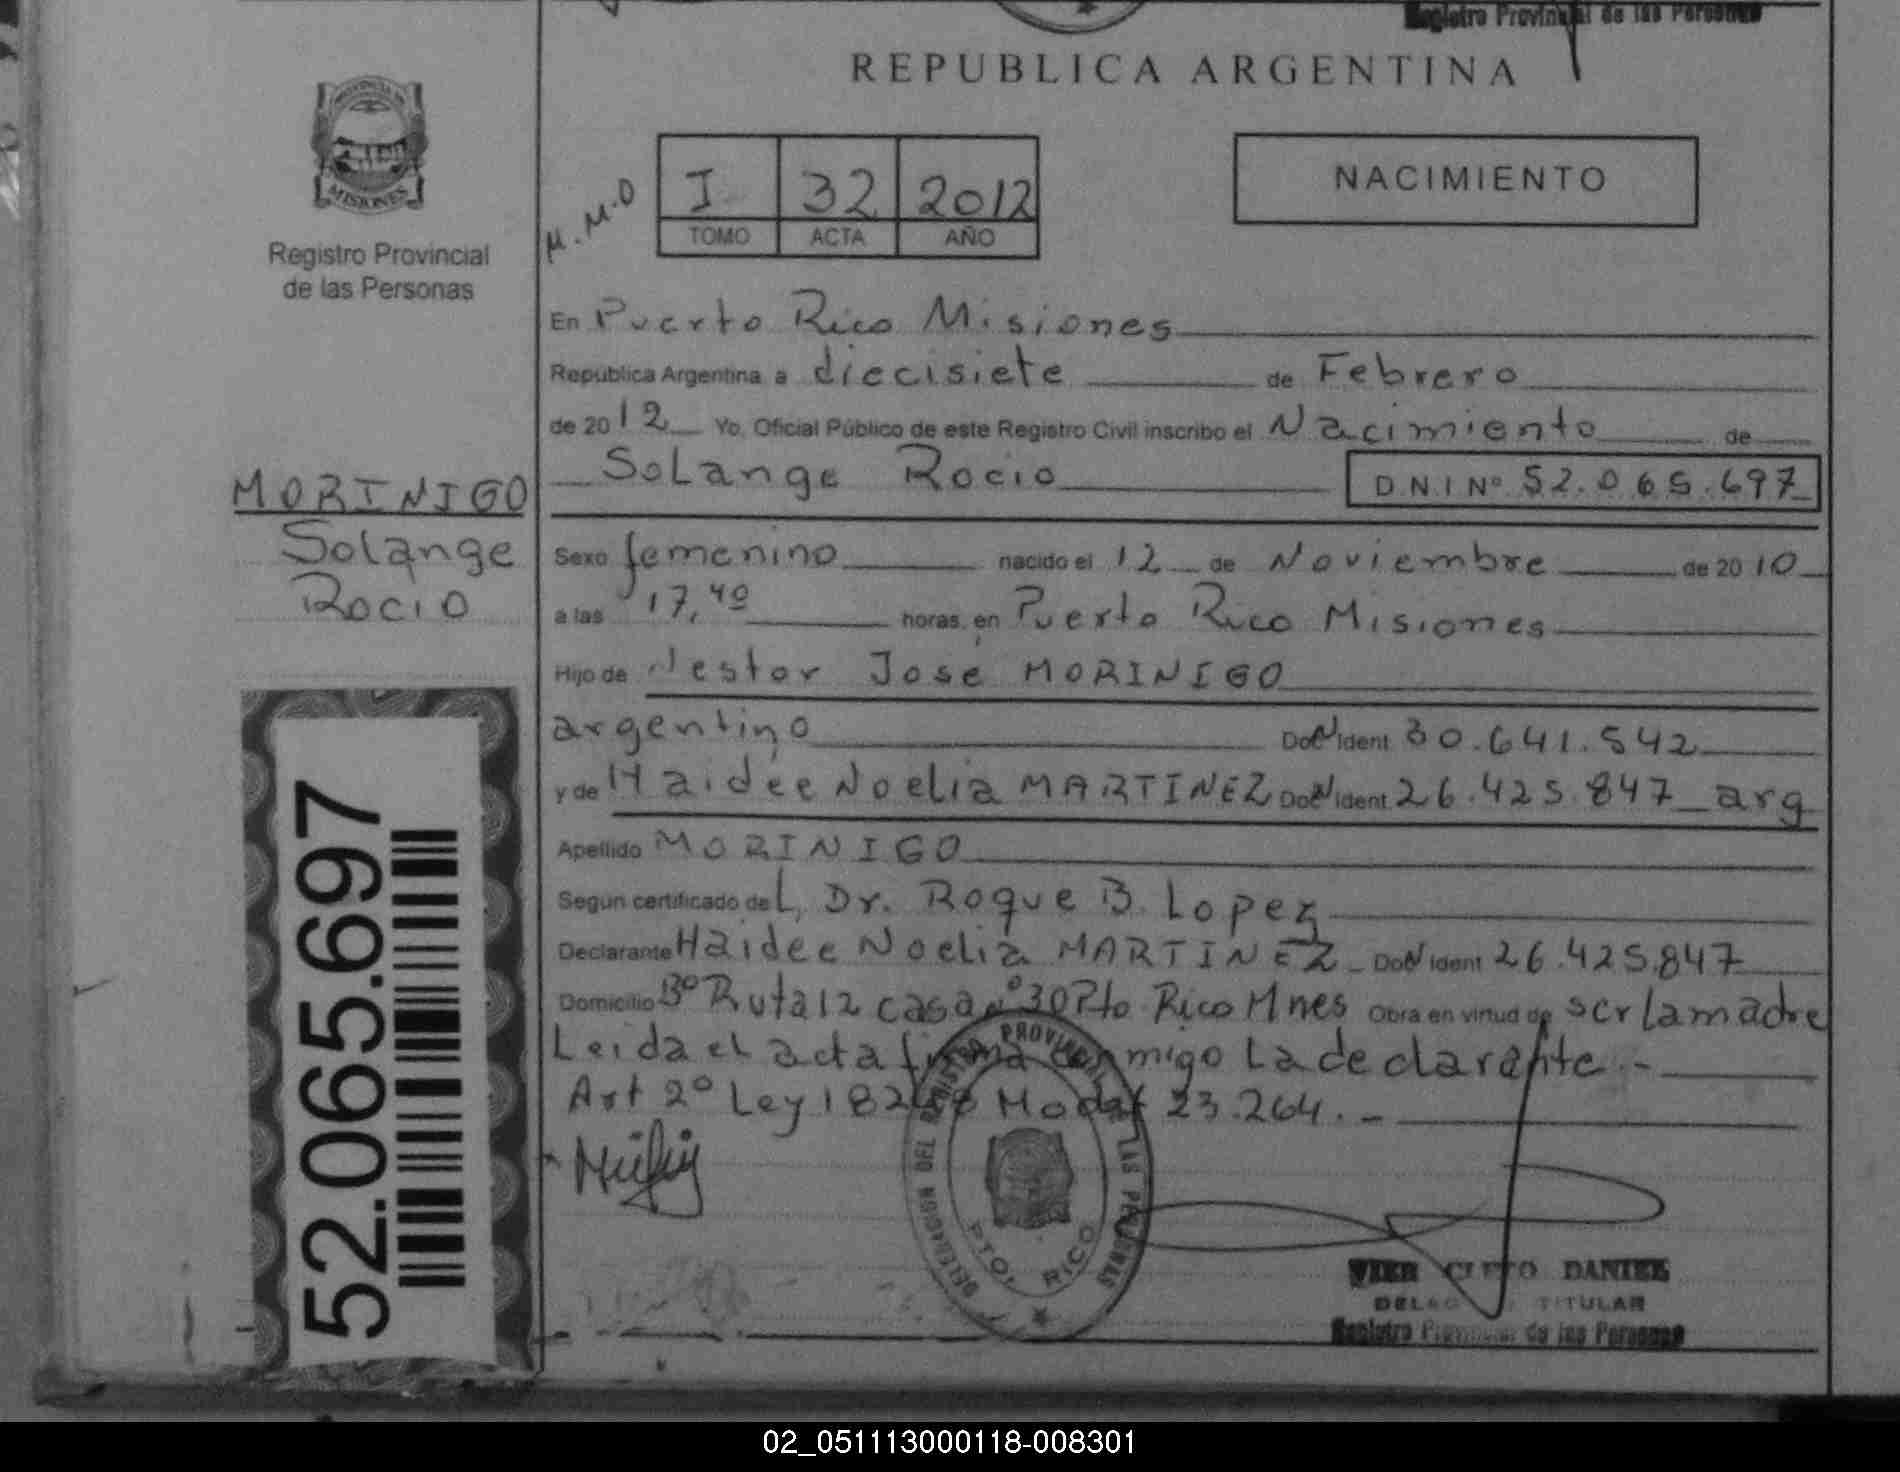 Registro Provincial de las Personas
REPUBLICA ARGENTINA
PROVINCIA DE
MISIONES
Registro Provincial
de las Personas
M.M.O
I 32 2012
TOMO ACTA AÑO
NACIMIENTO
En Puerto Rico Misiones
República Argentina a diecisiete de Febrero
de 2012 Yo, Oficial Público de este Registro Civil inscribo el Nacimiento de
Solange Rocio D.N.I Nº 52.065.697
MORINIGO
Solange
Rocio
Sexo femenino nacido el 12 de Noviembre de 2010
a las 17,40 horas, en Puerto Rico Misiones
Hijo de Nestor José MORINIGO
argentino Doc Ident 30.641.542
y de Haidée Noelia MARTINEZ Doc Ident 26.425.847 arg
Apellido MORINIGO
Según certificado del Dr. Roque B. Lopez
Declarante Haidee Noelia MARTINEZ Doc Ident 26.425.847
Domicilio Bº Ruta 12 casa nº 30 Pto Rico Mnes Obra en virtud de ser la madre
Leida el acta firma conmigo La declarante.-
Art 2º Ley 18248 Modif 23.264.-
52.065.697
DELEGACION DEL REGISTRO PROVINCIAL DE LAS PERSONAS
PTO. RICO
CLETO DANIEL
DELEGADO TITULAR
Registro Provincial de las Personas
02_051113000118-008301